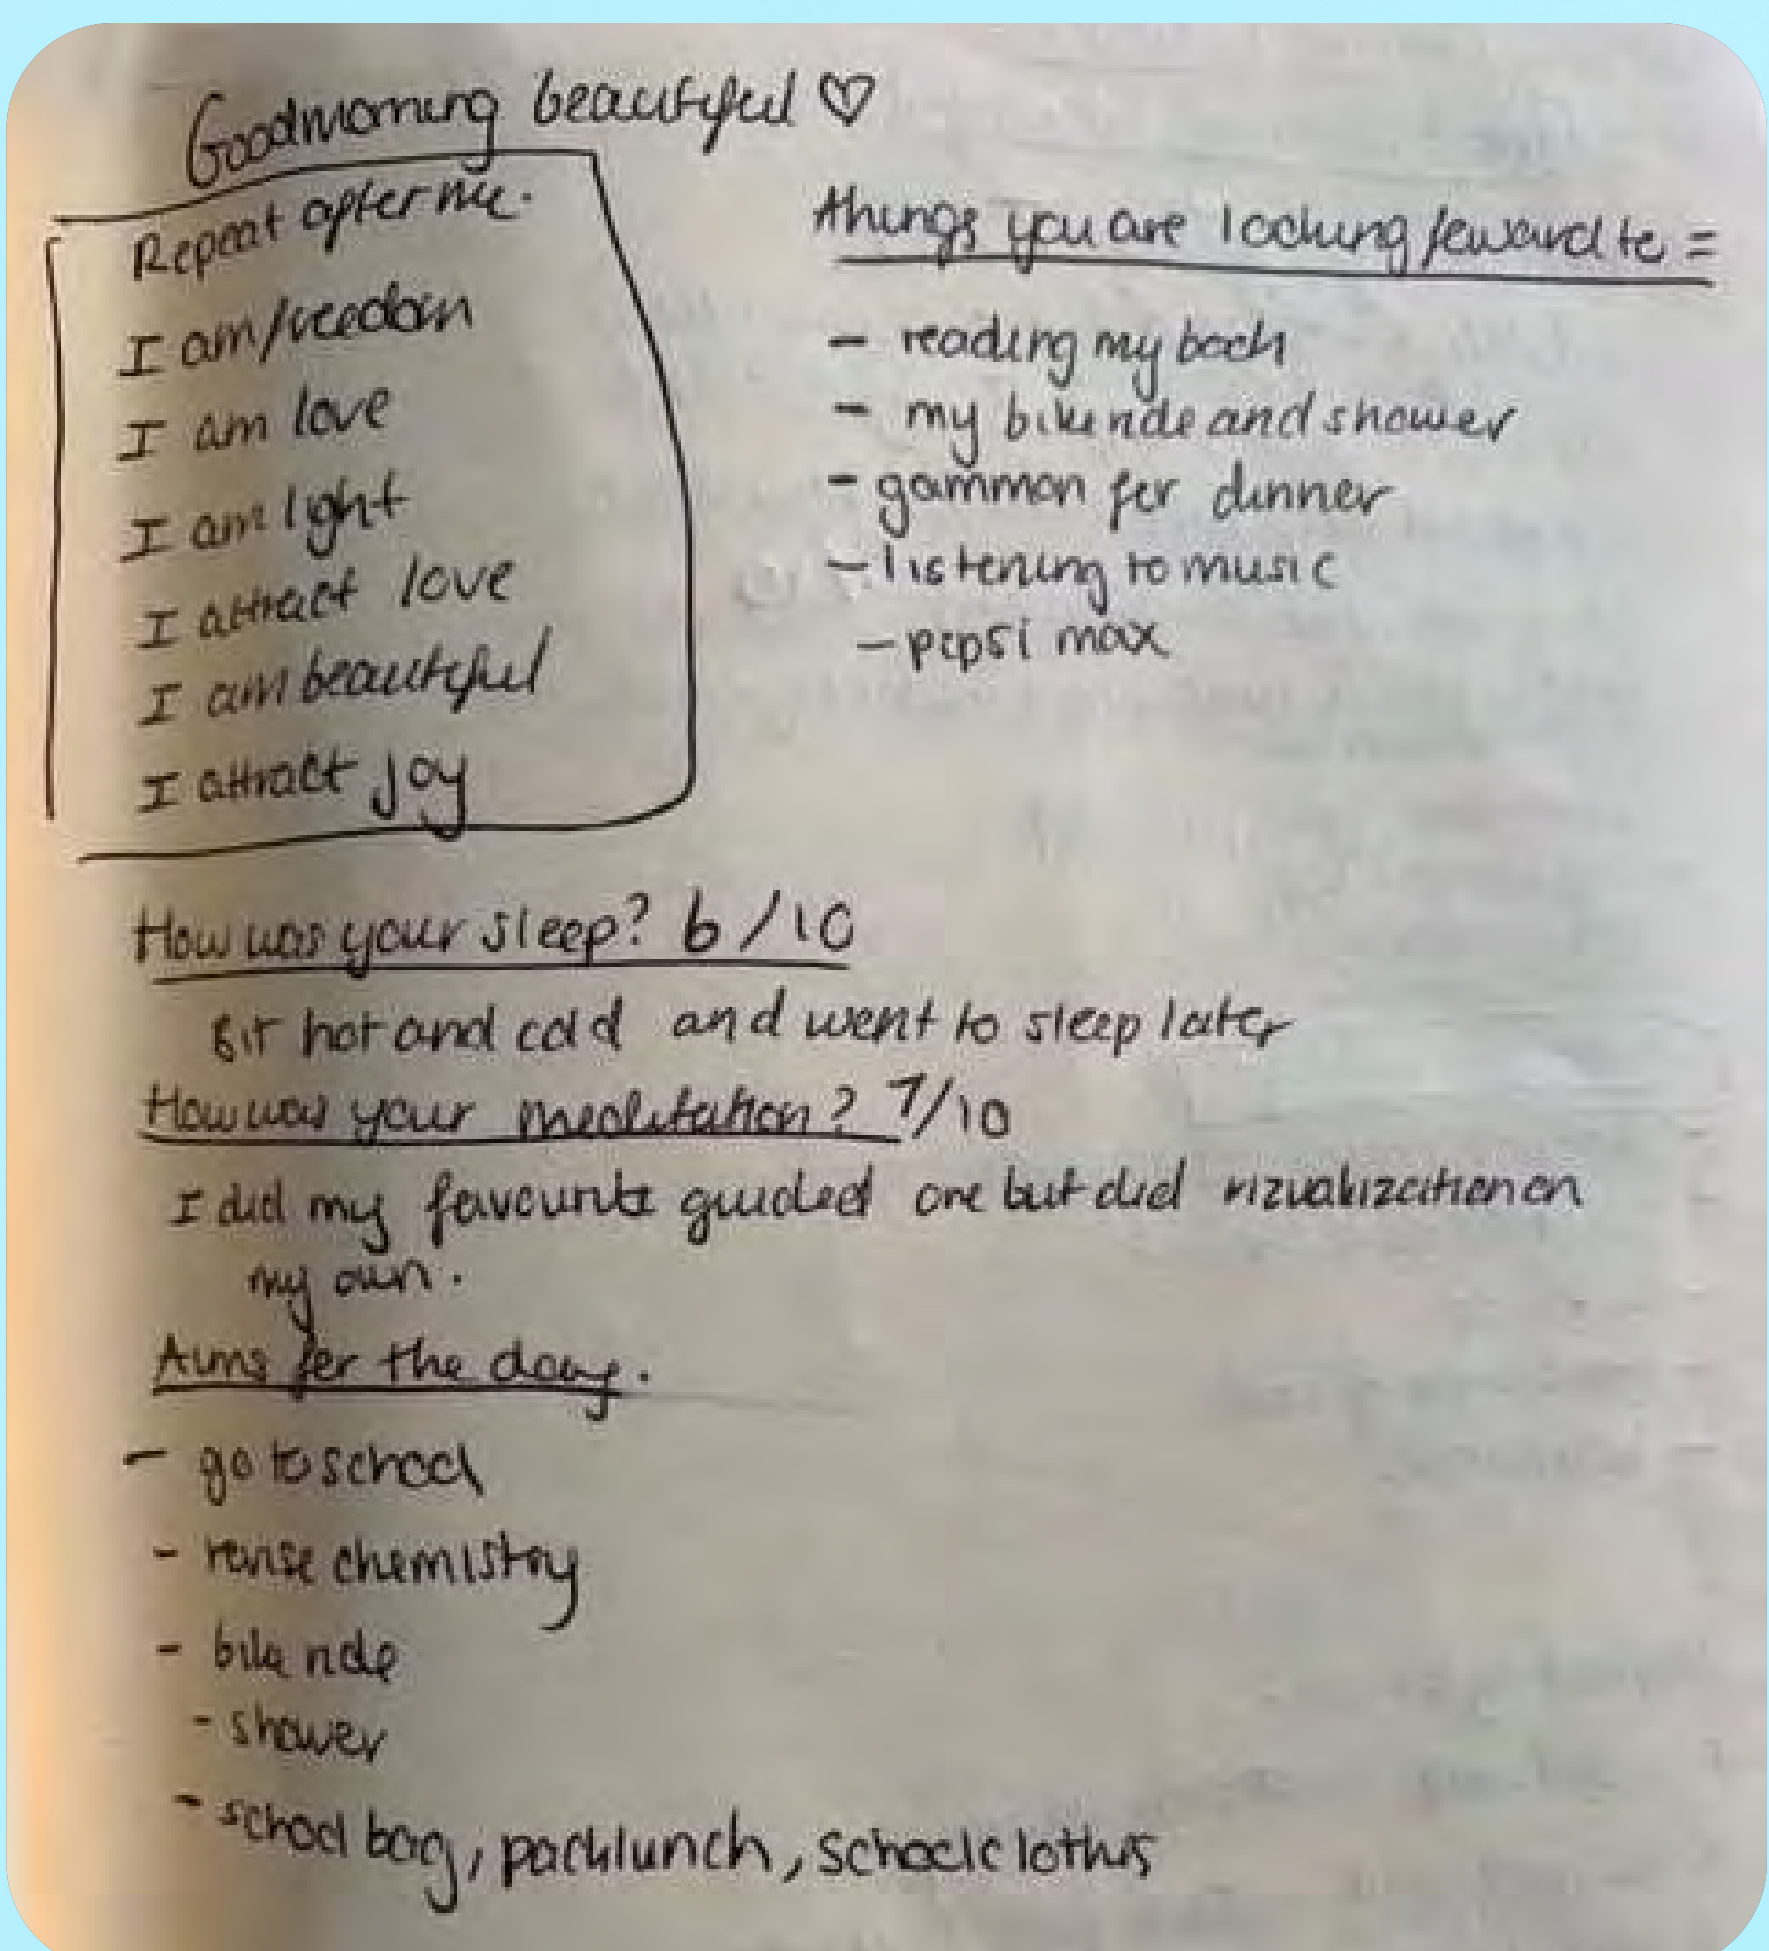 Goodmorning beautiful ♡
Repeat after me.
I am freedom
I am love
I am light
I attract love
I am beautiful
I attract joy
things you are looking forward to =
- reading my book
- my bike ride and shower
- gammon for dinner
- listening to music
- pepsi max
How was your sleep? 6/10
Bit hot and cold and went to sleep later
How was your meditation? 7/10
I did my favourite guided one but did vizualization on
my own.
Aims for the day.
- go to school
- revise chemistry
- bike ride
- shower
- school bag, packlunch, school clothes